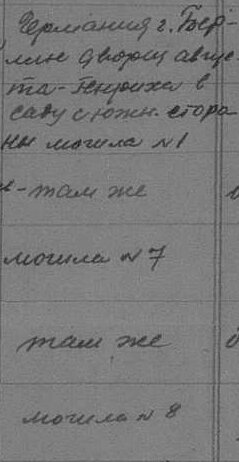 Германия г. Бер-
лин дворец авгус-
та-Генриха в
саду с южн. сторо
ны могила №1
"-там же
могила №7
там же
могила №8